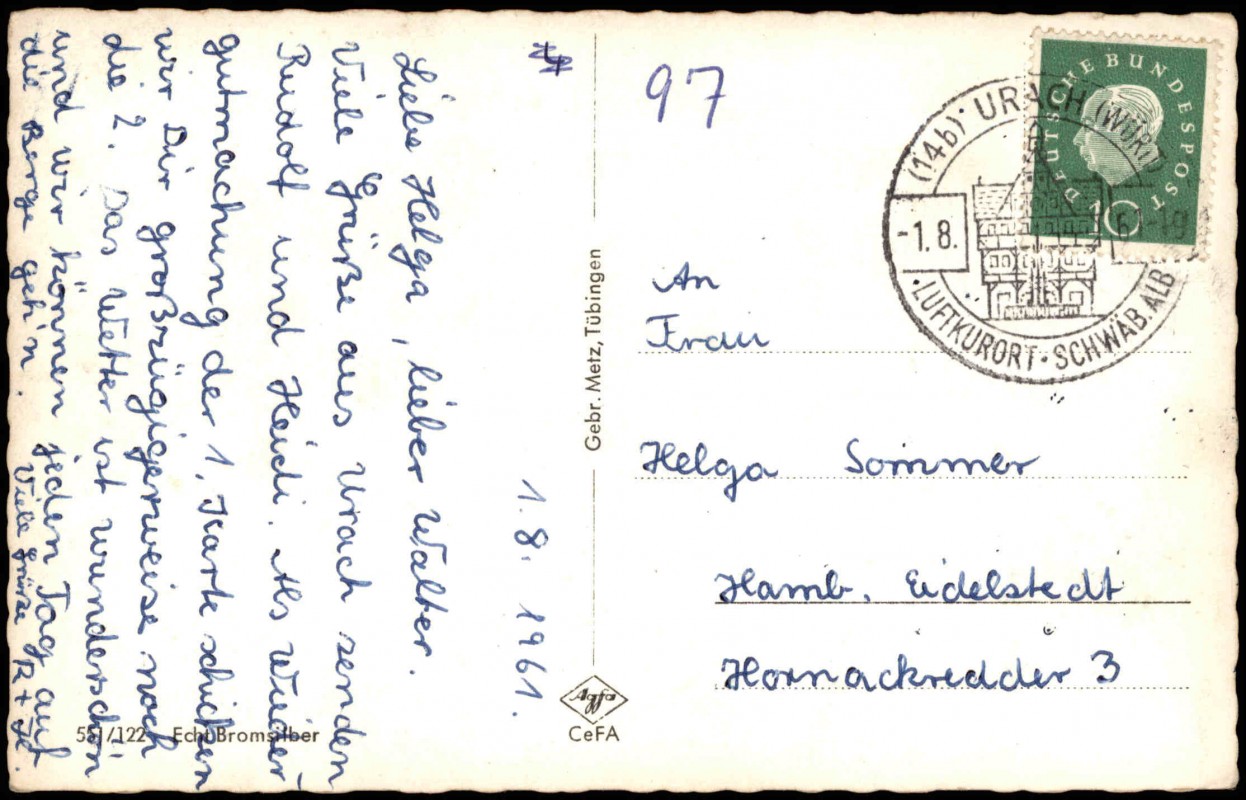 1.8.1961.
Liebe Helga, lieber Walter.
Viele Grüße aus Urach senden
Rudolf und Heidi. Als Wieder-
gutmachung der 1. Karte schicken
wir Dir großzügigerweise noch
die 2. Das Wetter ist wunderschön
und wir können jeden Tag auf
die Berge geh'n.
Viele Grüße R + H.
551/122 Echt Bromsilber
Gebr. Metz, Tübingen
Agfa
CeFA
97
DEUTSCHE BUNDESPOST
10
(14b) URACH (WÜRTT)
-1.8. 61-19
LUFTKURORT · SCHWÄB. ALB
An
Frau
Helga Sommer
Hamb. Eidelstedt
Hornackredder 3